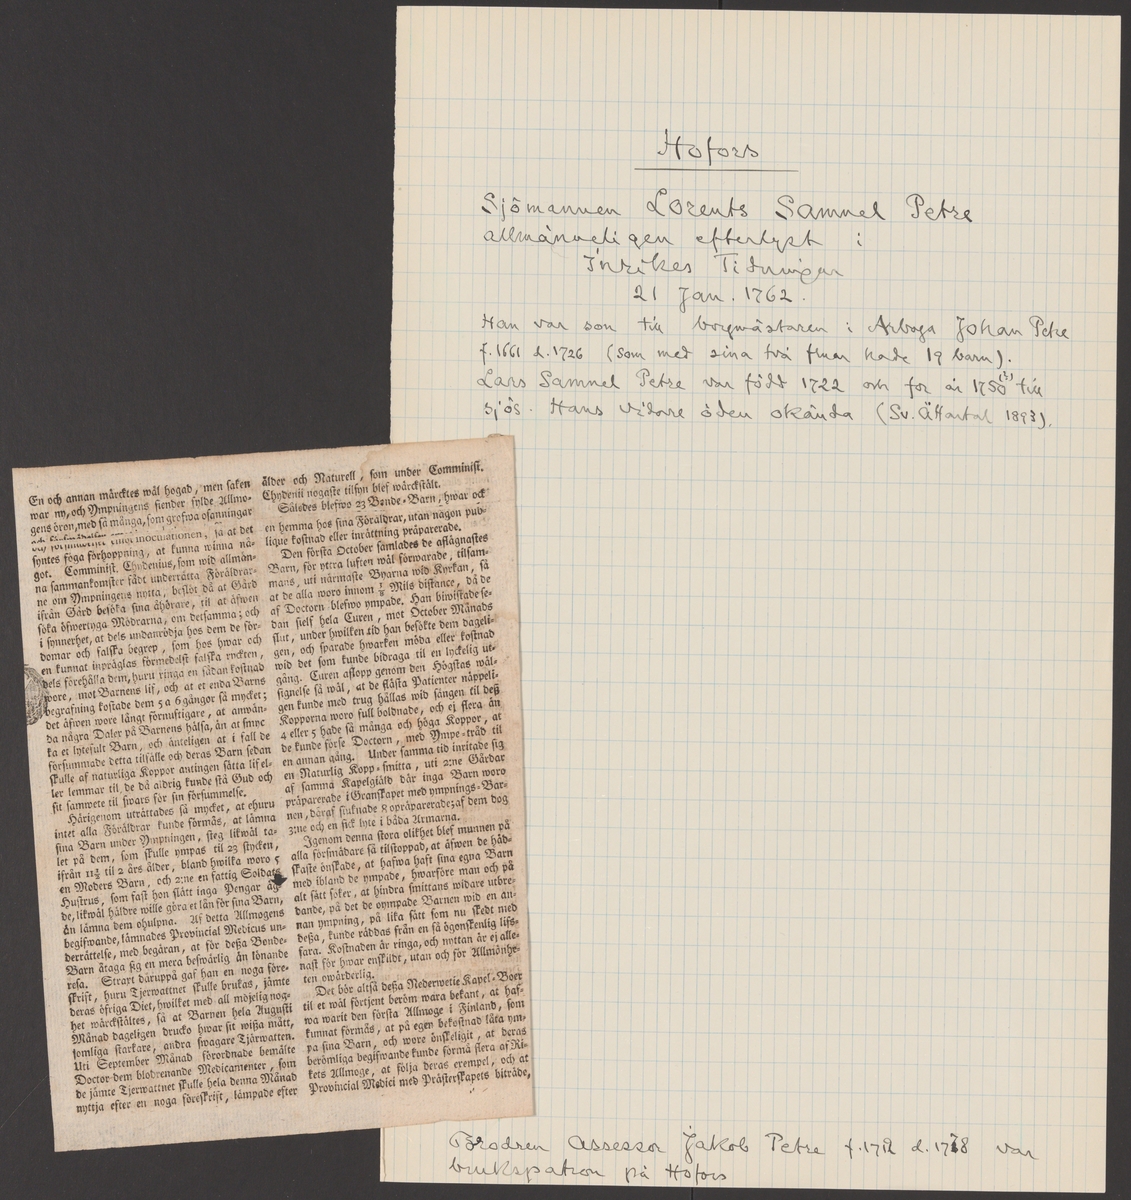 Hofors
Sjömannen Lorents Samuel Petre
allmänneligen efterlyst i
Inrikes Tidningar
21 Jan. 1762.
Han var son till borgmästaren i Arboga Johan Petre
f. 1661 d. 1726 (som med sina två fruar hade 19 barn).
Lars Samuel Petre var född 1722 och for år 1750(?) till
sjös. Hans vidare öden okända (Sv. Ättartal 1893).
En och annan märcktes wäl hogad, men saken
war ny, och Ympningens fiender fylde Allmo-
gens öron, med så många, som grofwa osanningar
inoculationen, så at det
syntes föga förhoppning, at kunna winna nå-
got. Comminist. Chydenius, som wid allmän-
na sammankomster fådt underrätta Föräldrar-
ne om Ympningens nytta, beslöt då at Gård
ifrån Gård besöka sina åhörare, til at äfwen
söka öfwertyga Mödrarna, om detsamma; och
i synnerhet, at dels undanrödja hos dem de för-
domar och falska begrep, som hos hwar och
en kunnat inpräglas förmedelst falska rycken,
dels förehålla dem, huru ringa en sådan kostnad
wore, mot Barnens lif, och at et enda Barns
begrafning kostade dem 5 a 6 gångor så mycket;
det äfwen wore långt förnuftigare, at anwän-
da några Daler på Barnens hälsa, än at smyc-
ka et lytefult Barn, och änteligen at i fall de
försummade detta tilfälle och deras Barn sedan
skulle af naturliga Koppor antingen sätta lif el-
ler lemmar til, de då aldrig kunde stå Gud och
sit samwete til swars för sin försummelse.
Härigenom uträttades så mycket, at ehuru
intet alla Föräldrar kunde förmås, at lämna
sina Barn under Ympningen, steg likwäl ta-
let på dem, som skulle ympas til 23 stycken,
ifrån 11½ til 2 års ålder, bland hwilka woro 5
en Moders Barn, och 2:ne en fattig Soldats
Hustrus, som fast hon slätt inga Pengar äg-
de, likwäl häldre wille göra et lån för sina Barn,
än lämna dem ohulpna. Af detta Allmogens
begifwande, lämnades Provincial Medicus un-
derrättelse, med begäran, at för deßa Bonde-
Barn åtaga sig en mera beswärlig än lönande
resa. Straxt däruppå gaf han en noga före-
skrift, huru Tjerwattnet skulle brukas, jämte
deras öfriga Diet, hwilket med all möjelig nog-
het wärckstältes, så at Barnen hela Augusti
Månad dageligen drucko hwar sit wißa mått,
somliga starkare, andra swagare Tjärwatten.
Uti September Månad förordnade bemälte
Doctor dem blodrenande Medicamenter, som
de jämte Tjerwattnet skulle hela denna Månad
nyttja efter en noga föreskrift, lämpade efter
ålder och Naturell, som under Comminist.
Chydenii nogaste tilsyn blef wärckstält.
Således blefwo 23 Bonde-Barn, hwar ock
en hemma hos sina Föräldrar, utan någon pub-
lique kostnad eller inrättning præparerade.
Den första October samlades de aflägnastes
Barn, för yttra luften wäl förwarade, tilsam-
mans, uti närmaste Byarna wid Kyrkan, så
at de alla woro innom ⅛ Mils distance, då de
af Doctorn blefwo ympade. Han biwistade se-
dan sielf hela Curen, mot October Månads
slut, under hwilken tid han besökte dem dageli-
gen, och sparade hwarken möda eller kostnad
wid det som kunde bidraga til en lyckelig ut-
gång. Curen aflopp genom den Högstas wäl-
signelse så wäl, at de flästa Patienter näppeli-
gen kunde med trug hållas wid sängen til deß
Kopporna woro full boldnade, och ej flera än
4 eller 5 hade så många och höga Koppor, at
de kunde förse Doctorn, med Ympe-tråd til
en annan gång. Under samma tid inritade sig
en Naturlig Kopp-smitta, uti 2:ne Gårdar
af samma Kapelgiäld där inga Barn woro
præparerade i Granskapet med ympnings-Bar-
nen, däraf siuknade 8 opræparerade; af dem dog
3:ne och en fick lyte i båda Armarna.
Igenom denna stora olikhet blef munnen på
alla försmädare så tilstoppad, at äfwen de håd-
skaste önskade, at hafwa haft sina egna Barn
med ibland de ympade, hwarföre man och på
alt sätt söker, at hindra smittans widare utbre-
dande, på det de oympade Barnen wid en an-
nan ympning, på lika sätt som nu skedt med
deßa, kunde räddas från en så ögonskenlig lifs-
fara. Kostnaden är ringa, och nyttan är ej alle-
nast för hwar enskildt, utan och för Allmänhe-
ten owärderlig.
Det bör altså deßa Nederwetie Kapel-Boer
til et wäl förtjent beröm wara bekant, at haf-
wa warit den första Allmoge i Finland, som
kunnat förmås, at på egen bekostnad låta ym-
pa sina Barn, och wore önskeligit, at deras
berömliga begifwande kunde förmå flera af Ri-
kets Allmoge, at följa deras exempel, och at
Provincial Medici med Prästerskapets biträde,
Brodren Assessor Jakob Petre f. 1712 d. 1778 var
brukspatron på Hofors